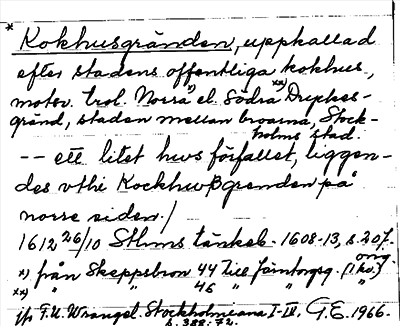 * Kokhusgränden, uppkallad
efter stadens offentliga kokhus,
motsv. trol. Norra *) el. Södra **) Dryckes-
gränd, staden mellan broarna, Stock-
holms stad.
-- ett litet hws förfallet, liggen-
des vthi Kockhwßgrenden på
norre siden./
1612 26/10 Sthms tänkeb. 1608-13, s. 207.
*) från Skeppsbron 44 till Järntorgsg.
**) " " 46 " "
jfr F.U. Wrangel. Stockholmiana I-IV. G.E. 1966.
s. 388. 72.